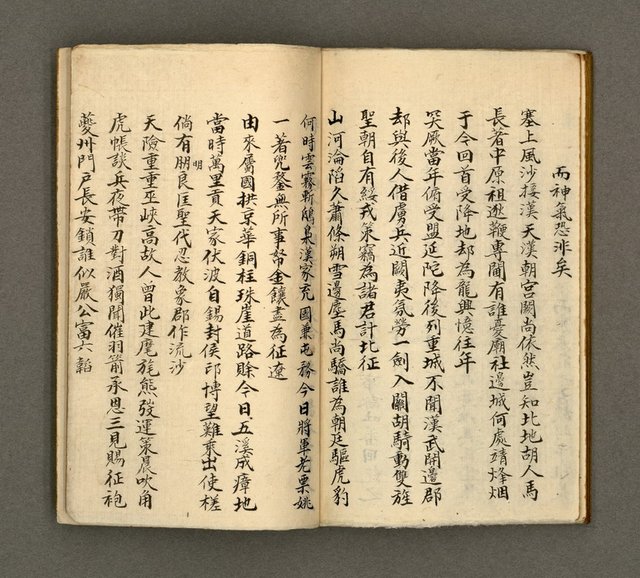 而神氣恐非矣
塞上風沙接漢天漢朝宮闕尚依然豈知北地胡人馬
長著中原祖逖鞭專閫有誰憂廟社邊城何處靖烽烟
于今回首受降地却為龍輿憶往年
突厥當年俯受盟延陀降後列重城不聞漢武開邊郡
却與後人借虜兵近闕夷氛勞一劍入關胡騎動雙旌
聖朝自有綏戎策竊為諸君計北征
山河淪陷久蕭條朔雪邊塵馬尚驕誰為朝廷驅虎豹
何時雲霧斬鴟梟漢家充國兼屯務今日將軍老票姚
一著兜鍪無所事帑金饟盡為征遼
由來屬國拱京華銅柱珠崖道路賒今日五溪成瘴地
當時萬里貢天家伏波自錫封侯印博望難乘出使槎
倘有朋良匡聖代忍教象郡作流沙
明
天險重重巫峽高故人曾此建麾旄熊發運策晨吹角
虎帳談兵夜帶刀對酒獨聞催羽箭承恩三見賜征袍
夔州門戶長安鎖誰似嚴公富六韜